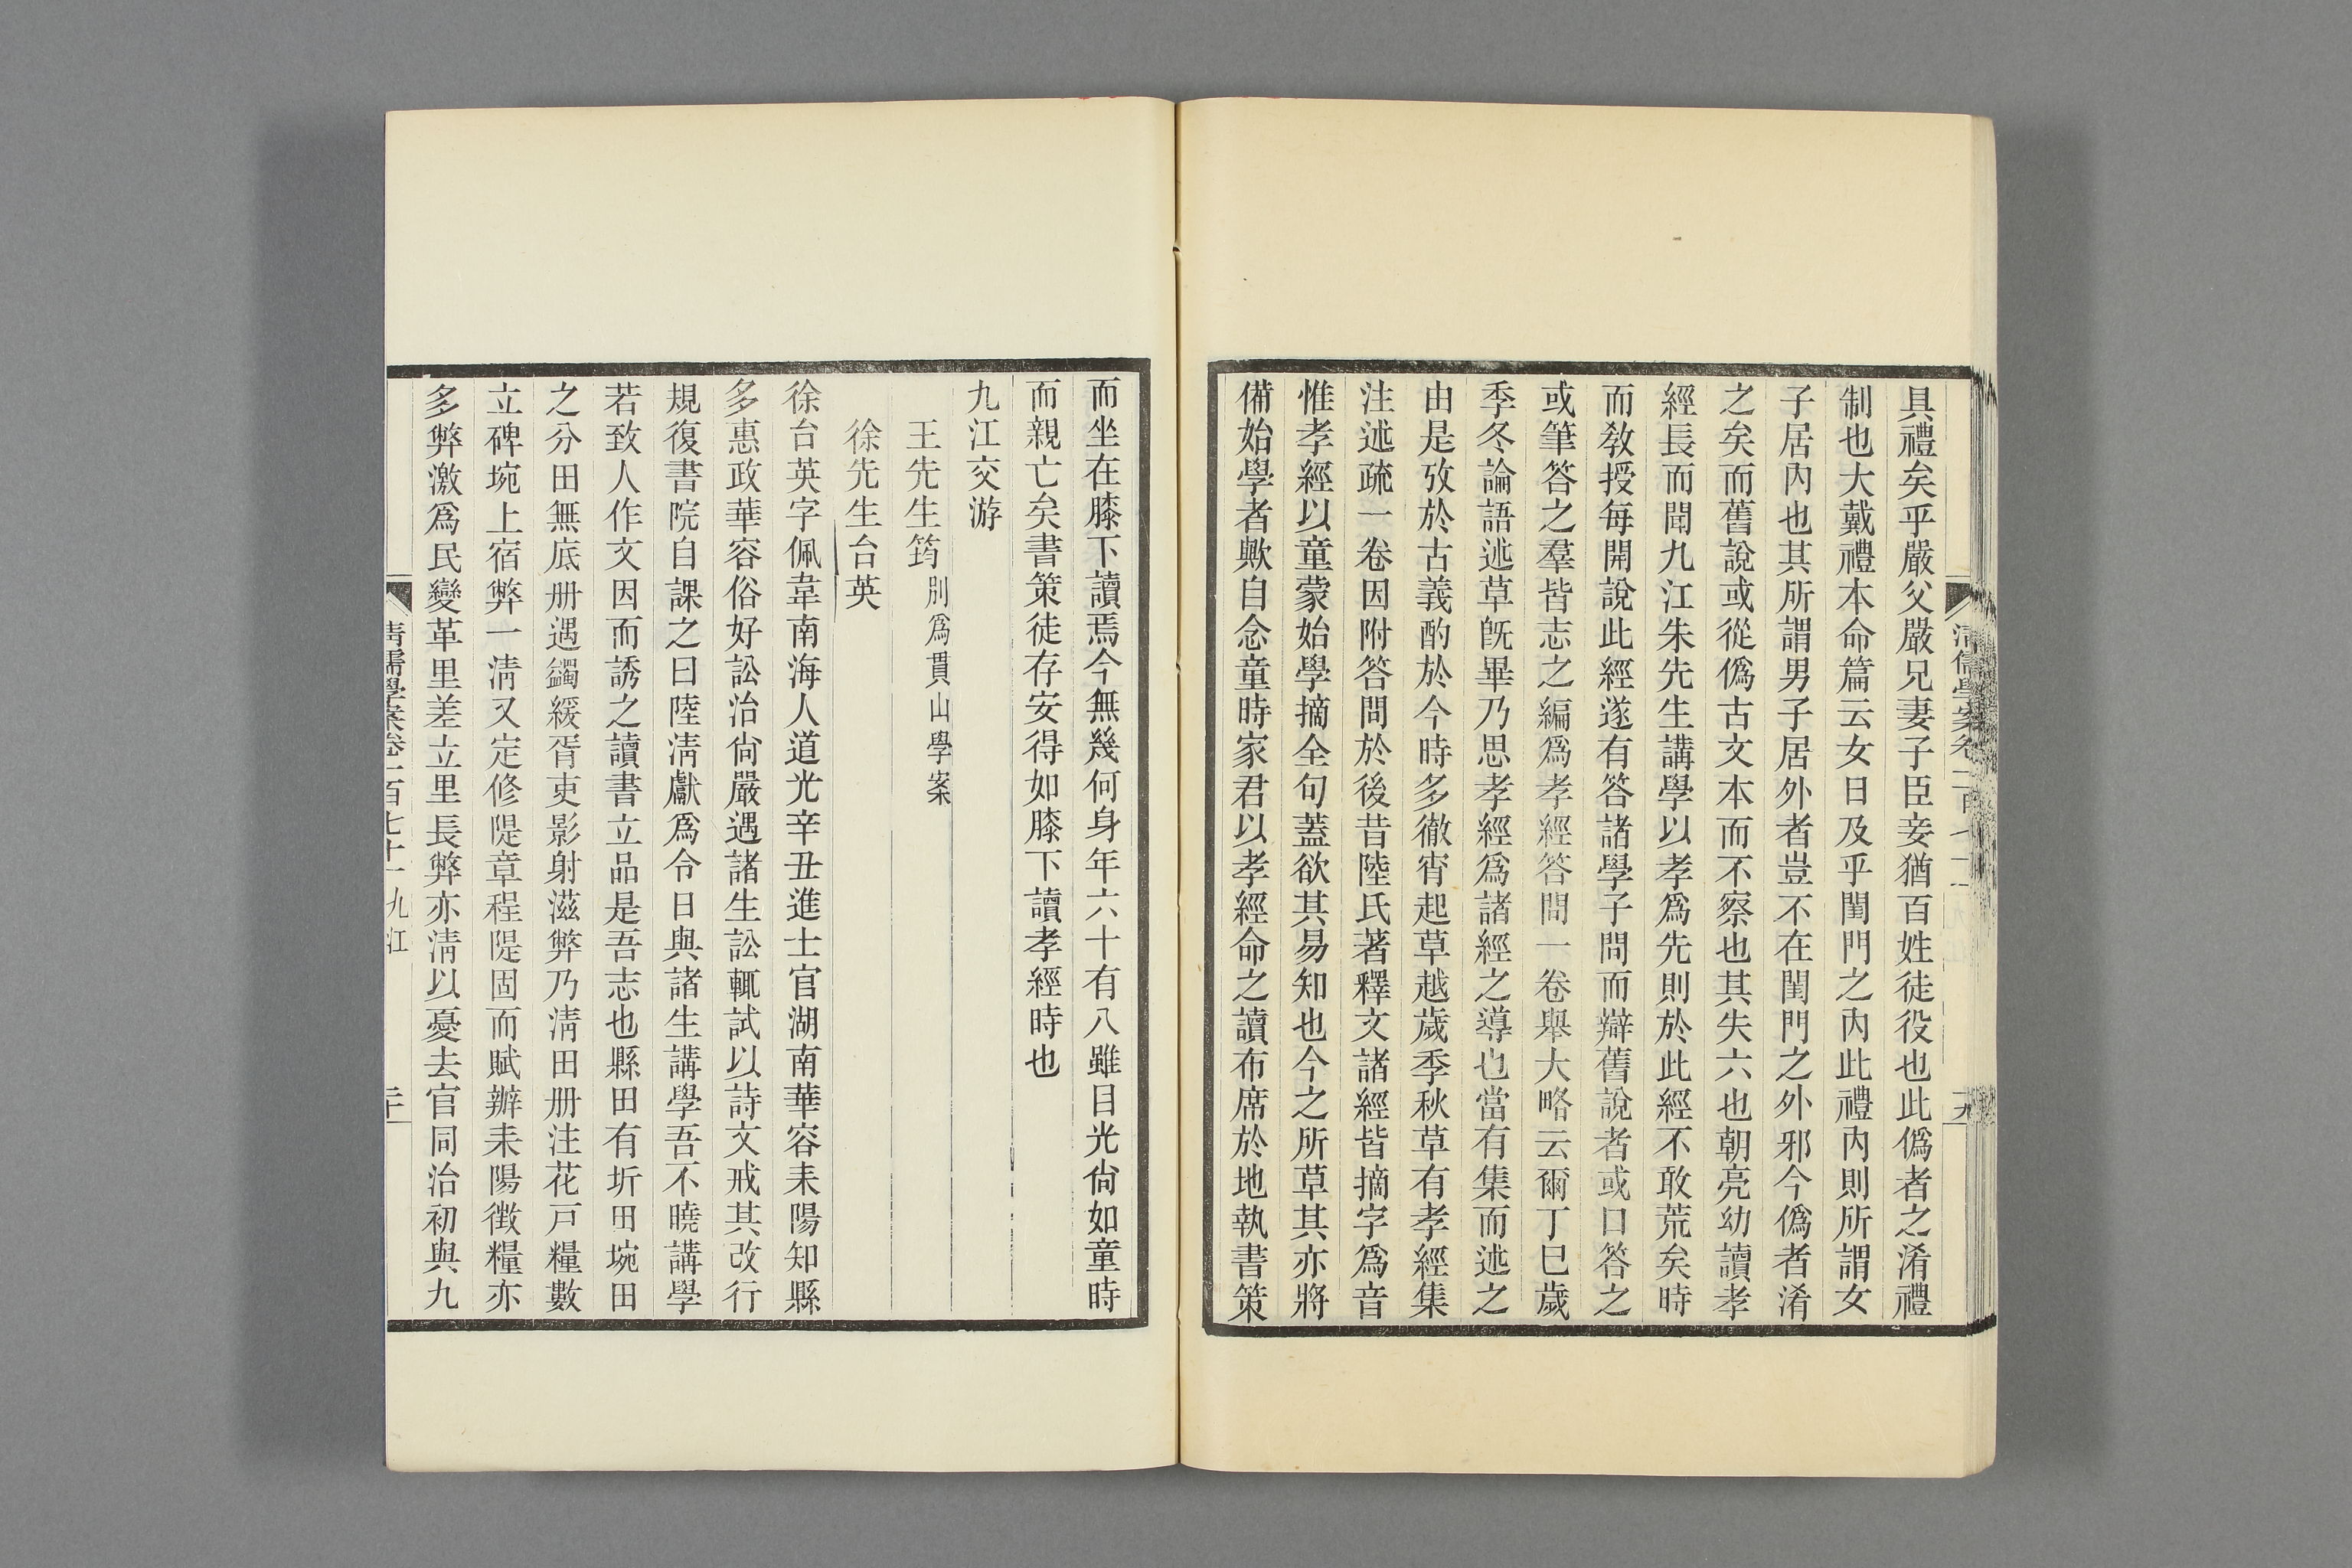 具禮矣乎嚴父嚴兄妻子臣妾猶百姓徒役也此僞者之淆禮
制也大戴禮本命篇云女日及乎閨門之內此禮內則所謂女
子居內也其所謂男子居外者豈不在閨門之外邪今僞者淆
之矣而舊說或從僞古文本而不察也其失六也朝亮幼讀孝
經長而聞九江朱先生講學以孝爲先則於此經不敢荒矣時
而敎授每開說此經遂有答諸學子問而辯舊說者或口答之
或筆答之羣皆志之編爲孝經答問一卷舉大略云爾丁巳歲
季冬論語述草旣畢乃思孝經爲諸經之導也當有集而述之
由是攷於古義酌於今時多徹宵起草越歲季秋草有孝經集
注述疏一卷因附答問於後昔陸氏著釋文諸經皆摘字爲音
惟孝經以童蒙始學摘全句蓋欲其易知也今之所草其亦將
備始學者歟自念童時家君以孝經命之讀布席於地執書策
清儒學案卷一百七十一
十九
而坐在膝下讀焉今無幾何身年六十有八雖目光尙如童時
而親亡矣書策徒存安得如膝下讀孝經時也
九江交游
王先生筠 別爲貫山學案
徐先生台英
徐台英字佩韋南海人道光辛丑進士官湖南華容耒陽知縣
多惠政華容俗好訟治尙嚴遇諸生訟輒試以詩文戒其改行
規復書院自課之曰陸淸獻爲令日與諸生講學吾不曉講學
若致人作文因而誘之讀書立品是吾志也縣田有圻田垸田
之分田無底册遇蠲緩胥吏影射滋弊乃淸田册注花戶糧數
立碑垸上宿弊一淸又定修隄章程隄固而賦辦耒陽徵糧亦
多弊激爲民變革里差立里長弊亦淸以憂去官同治初與九
清儒學案卷一百七十一 九江
二十